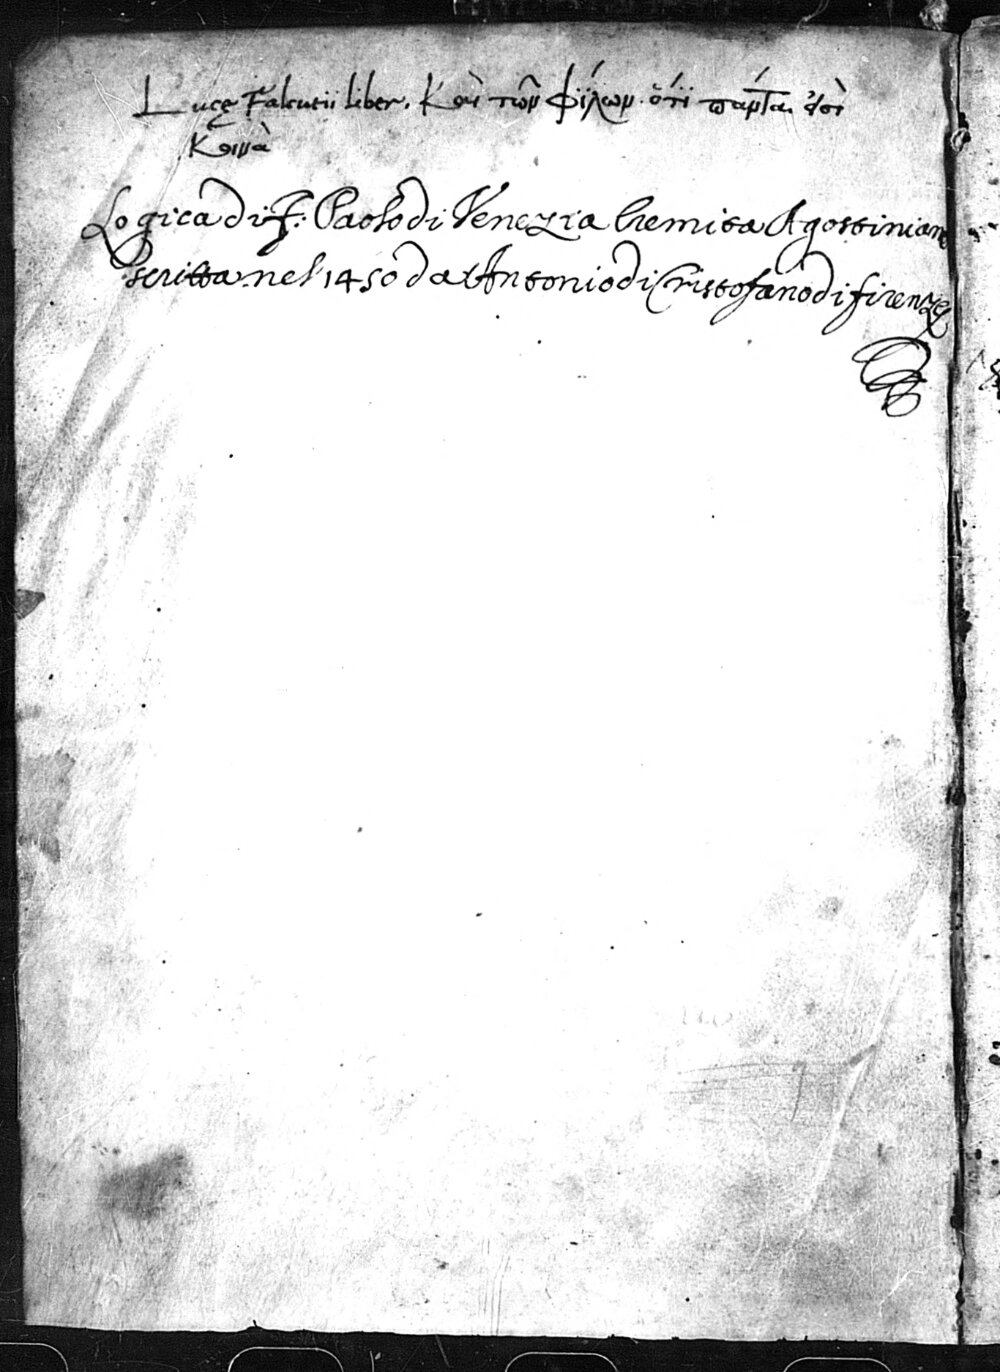 Lucę Falcutii liber. Καὶ τῶν φΐλων. ὅτϊ πάντα ἐστὶ
Κοινὰ
Logica di F. Paolo di Venezia Eremita Agostiniano
scritta nel 1450 da Antonio di Cristofano di firenze